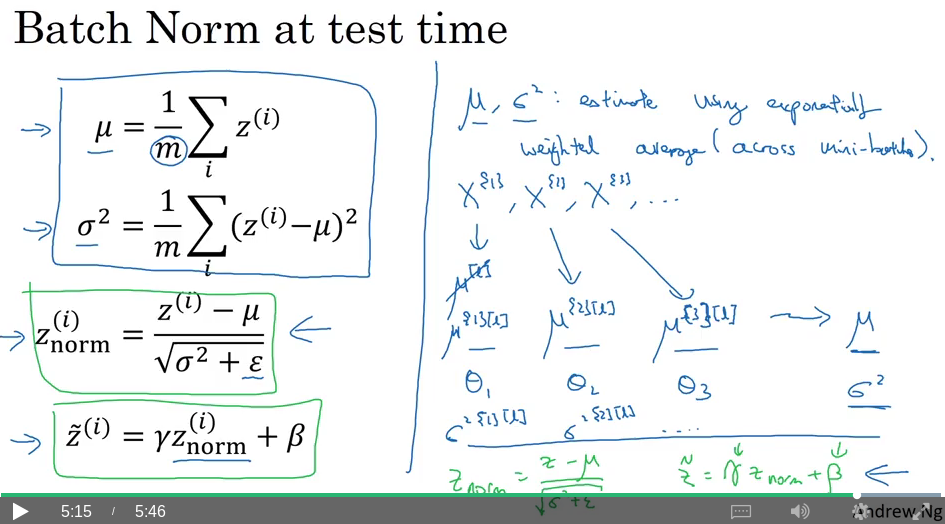 Batch Norm at test time
μ = 1/m ∑_i z^(i)
σ² = 1/m ∑_i (z^(i) − μ)²
z_norm^(i) = (z^(i) − μ) / √(σ² + ε)
z̃^(i) = γz_norm^(i) + β
μ, σ² : estimate using exponentially
weighted average (across mini-batches).
X^{1}, X^{2}, X^{3}, ...
μ^{1}[l] μ^{2}[l] μ^{3}[l] → μ
θ₁ θ₂ θ₃ σ²
σ²^{1}[l] σ²^{2}[l] ....
z_norm = (z − μ) / √(σ² + ε) z̃ = γ z_norm + β
5:15 / 5:46
Andrew Ng